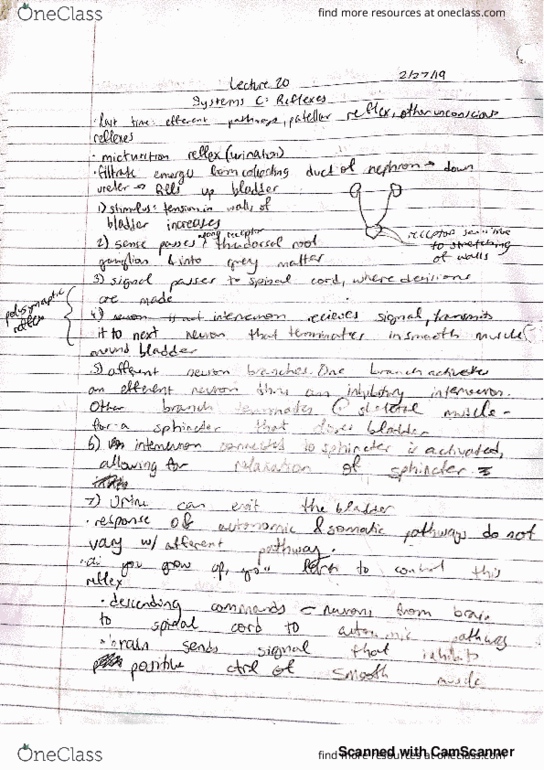 OneClass
find more resources at oneclass.com
Lecture 20
2/27/19
Systems C: Reflexes
· last time: efferent pathways, patellar reflex, other unconscious
reflexes
· micturition reflex (urination)
· filtrate emerges from collecting duct of nephron → down
ureter → fills up bladder
1) stimulus: tension in walls of
bladder increases
receptor sensitive
to stretching
of walls
2) sense passes along receptor thru dorsal root
ganglion & into grey matter
3) signal passes to spinal cord, where decisions
are made
polysynaptic
reflex
4) interneuron recieves signal, transmits
it to next neuron that terminates in smooth muscle
around bladder
5) afferent neuron branches. One branch activates
an efferent neuron thru an inhibitory interneuron.
Other branch terminates @ skeletal muscle -
for a sphincter that closes bladder
6) interneuron connected to sphincter is activated,
allowing for relaxation of sphincter
7) Urine can exit the bladder
· response of autonomic & somatic pathways do not
vary w/ afferent pathway.
· as you grow up, you learn to control this
reflex
· descending commands - neurons from brain
to spinal cord to autonomic pathway
· brain sends signal that inhibits
positive ctrl of smooth muscle
OneClass
find more resources at oneclass.com
Scanned with CamScanner